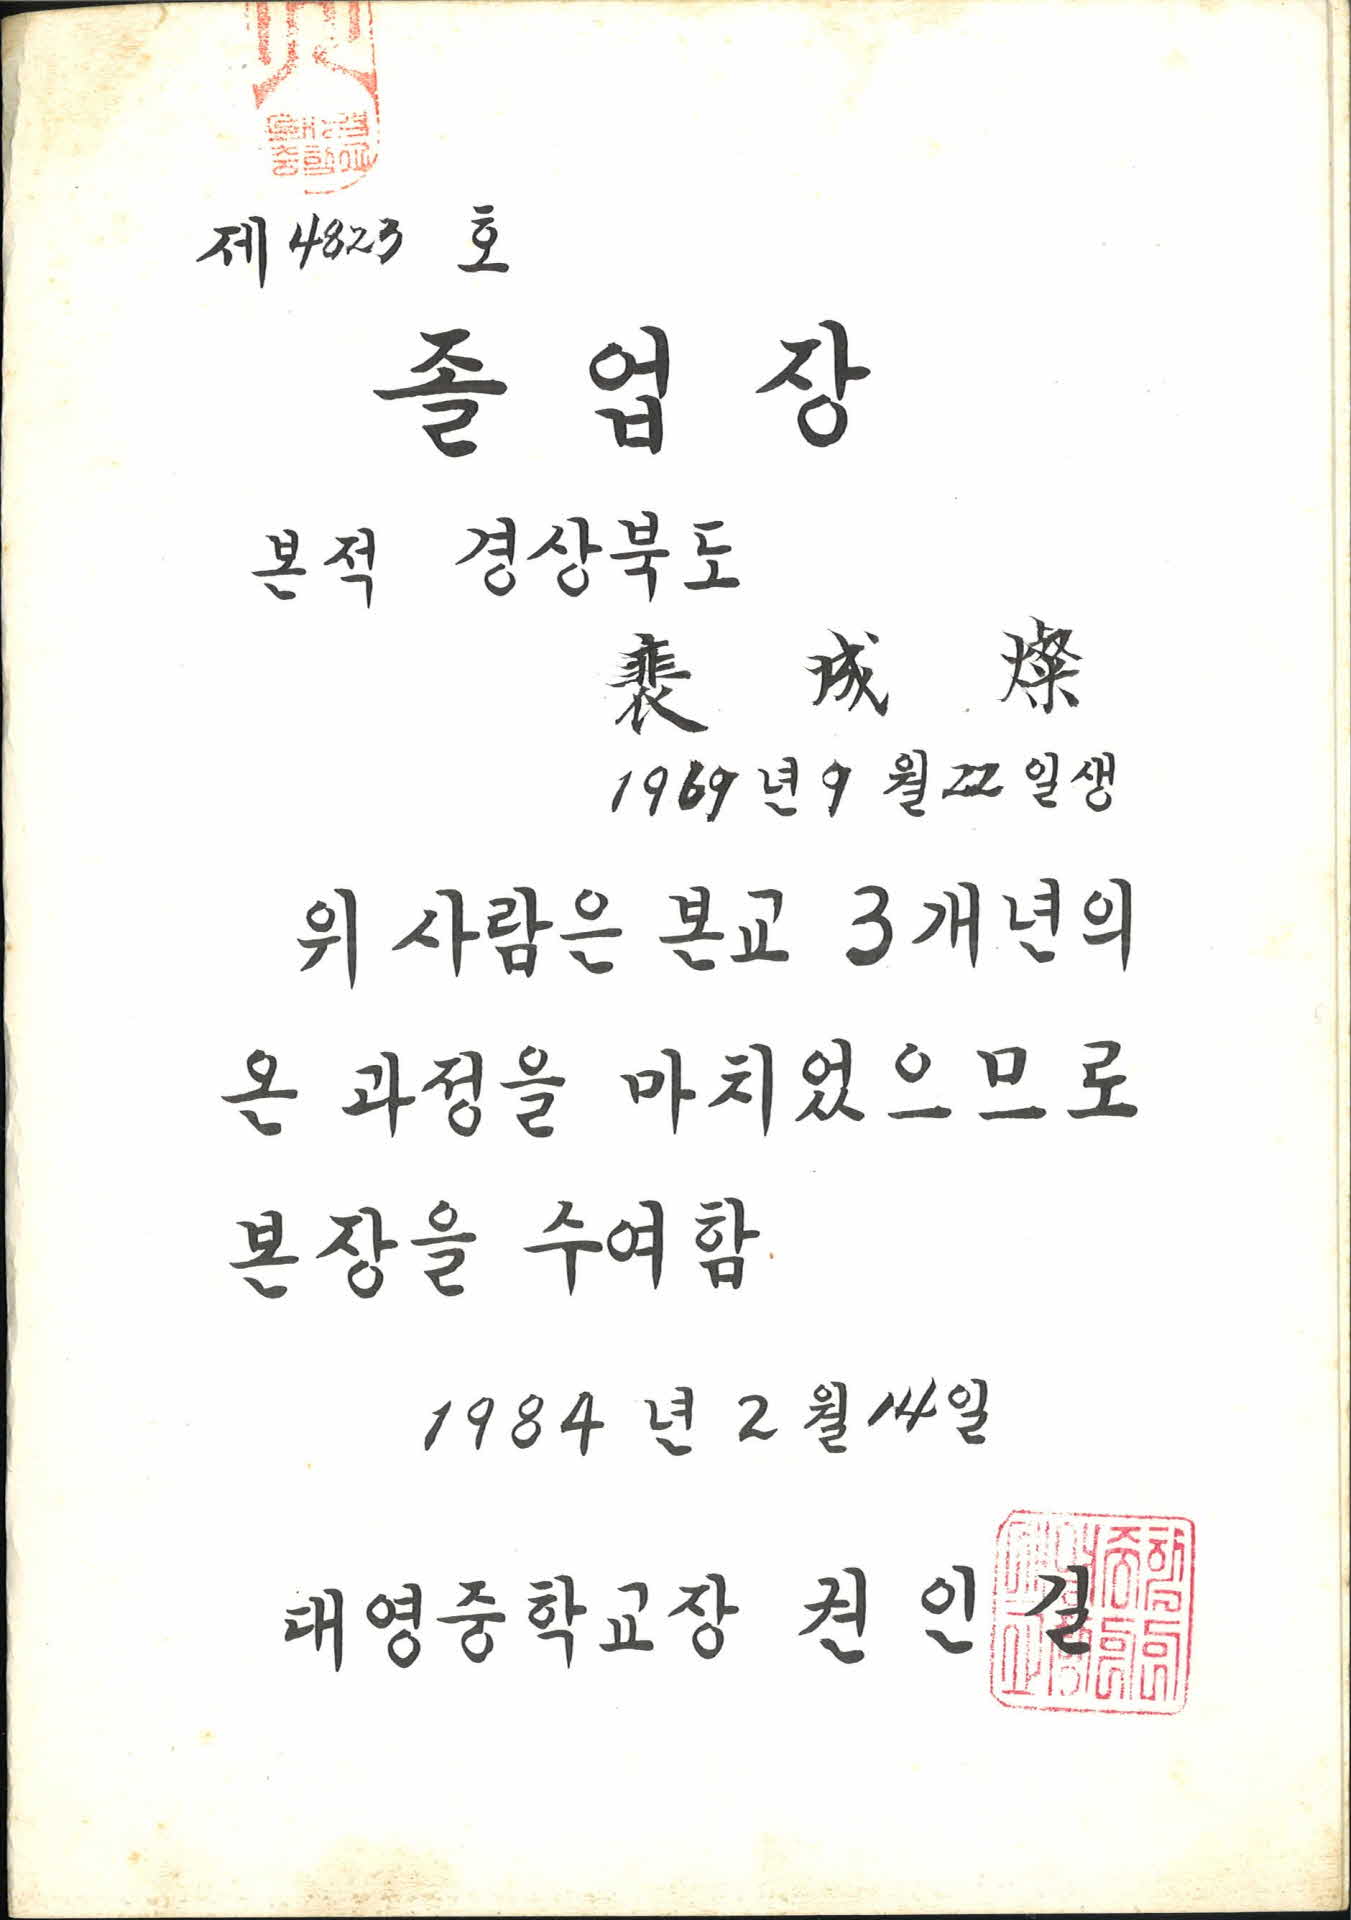 제 4823 호
졸업장
본적 경상북도
裵 成 燦
1969년 9월 22일생
위 사람은 본교 3개년의
온 과정을 마치었으므로
본장을 수여함
1984년 2월 14일
대영중학교장 권인길